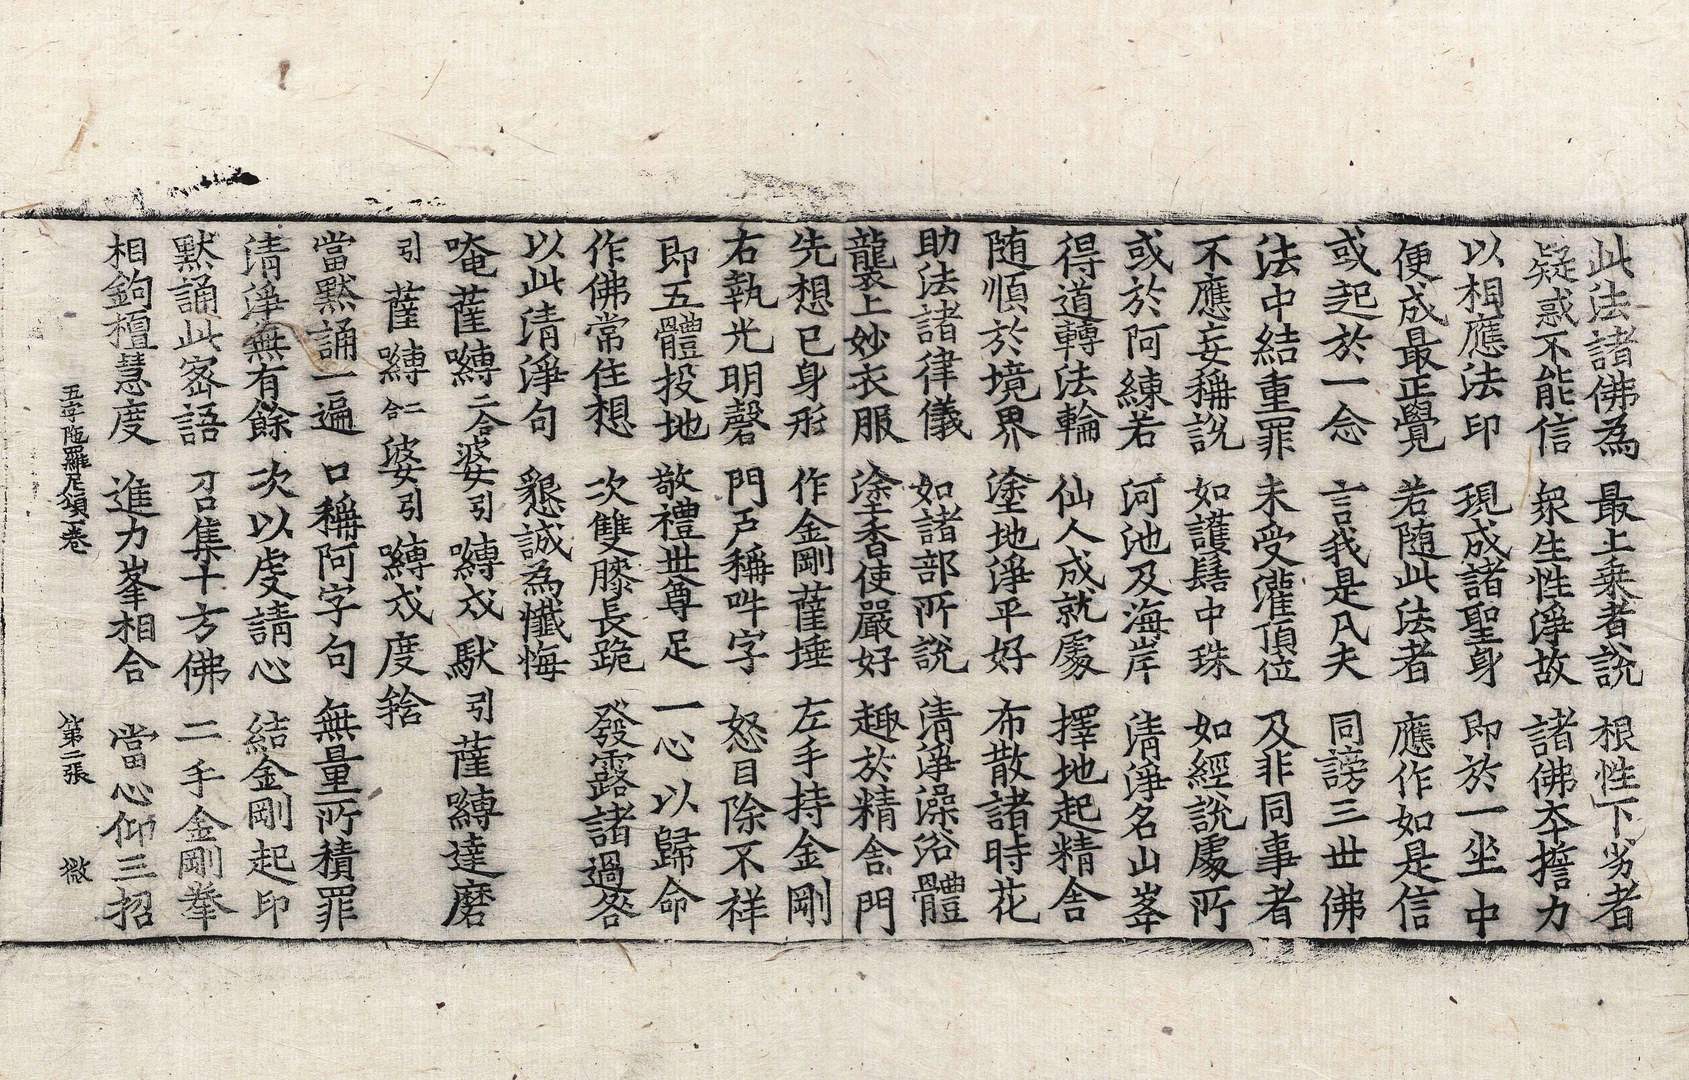 此法諸佛為 最上乗者說 根性下劣者
疑惑不能信 衆生性淨故 諸佛夲誓力
以相應法印 現成諸聖身 即於一坐中
便成最正覺 若随此法者 應作如是信
或起於一念 言我是凡夫 同謗三世佛
法中結重罪 未受灌頂位 及非同事者
不應妄稱說 如護髻中珠 如經說處所
或於阿練若 河池及海岸 清淨名山峯
得道轉法輪 仙人成就處 擇地起精舎
随順於境界 塗地淨平好 布散諸時花
助法諸律儀 如諸部所說 清淨澡浴體
龍衮上妙衣服 塗香使嚴好 趣於精舎門
先想已身形 作金剛薩埵 左手持金剛
右執光明磬 門戶稱吽字 怒目除不祥
即五體投地 敬禮世尊足 一心以歸命
作佛常住想 次雙膝長跪 發露諸過咎
以此清淨句 懇誠為懺悔
唵薩嚩二合婆引嚩戍馱引薩嚩達磨
引薩嚩二合婆引嚩戍度䅁
當默誦一遍 口稱阿字句 無量所積罪
清淨無有餘 次以虔請心 結金剛起印
默誦此密語 召集十方佛 二手金剛拳
相鉤檀慧度 進力峯相合 當心仰三招
五字陁羅尼頌一卷 第二張 微